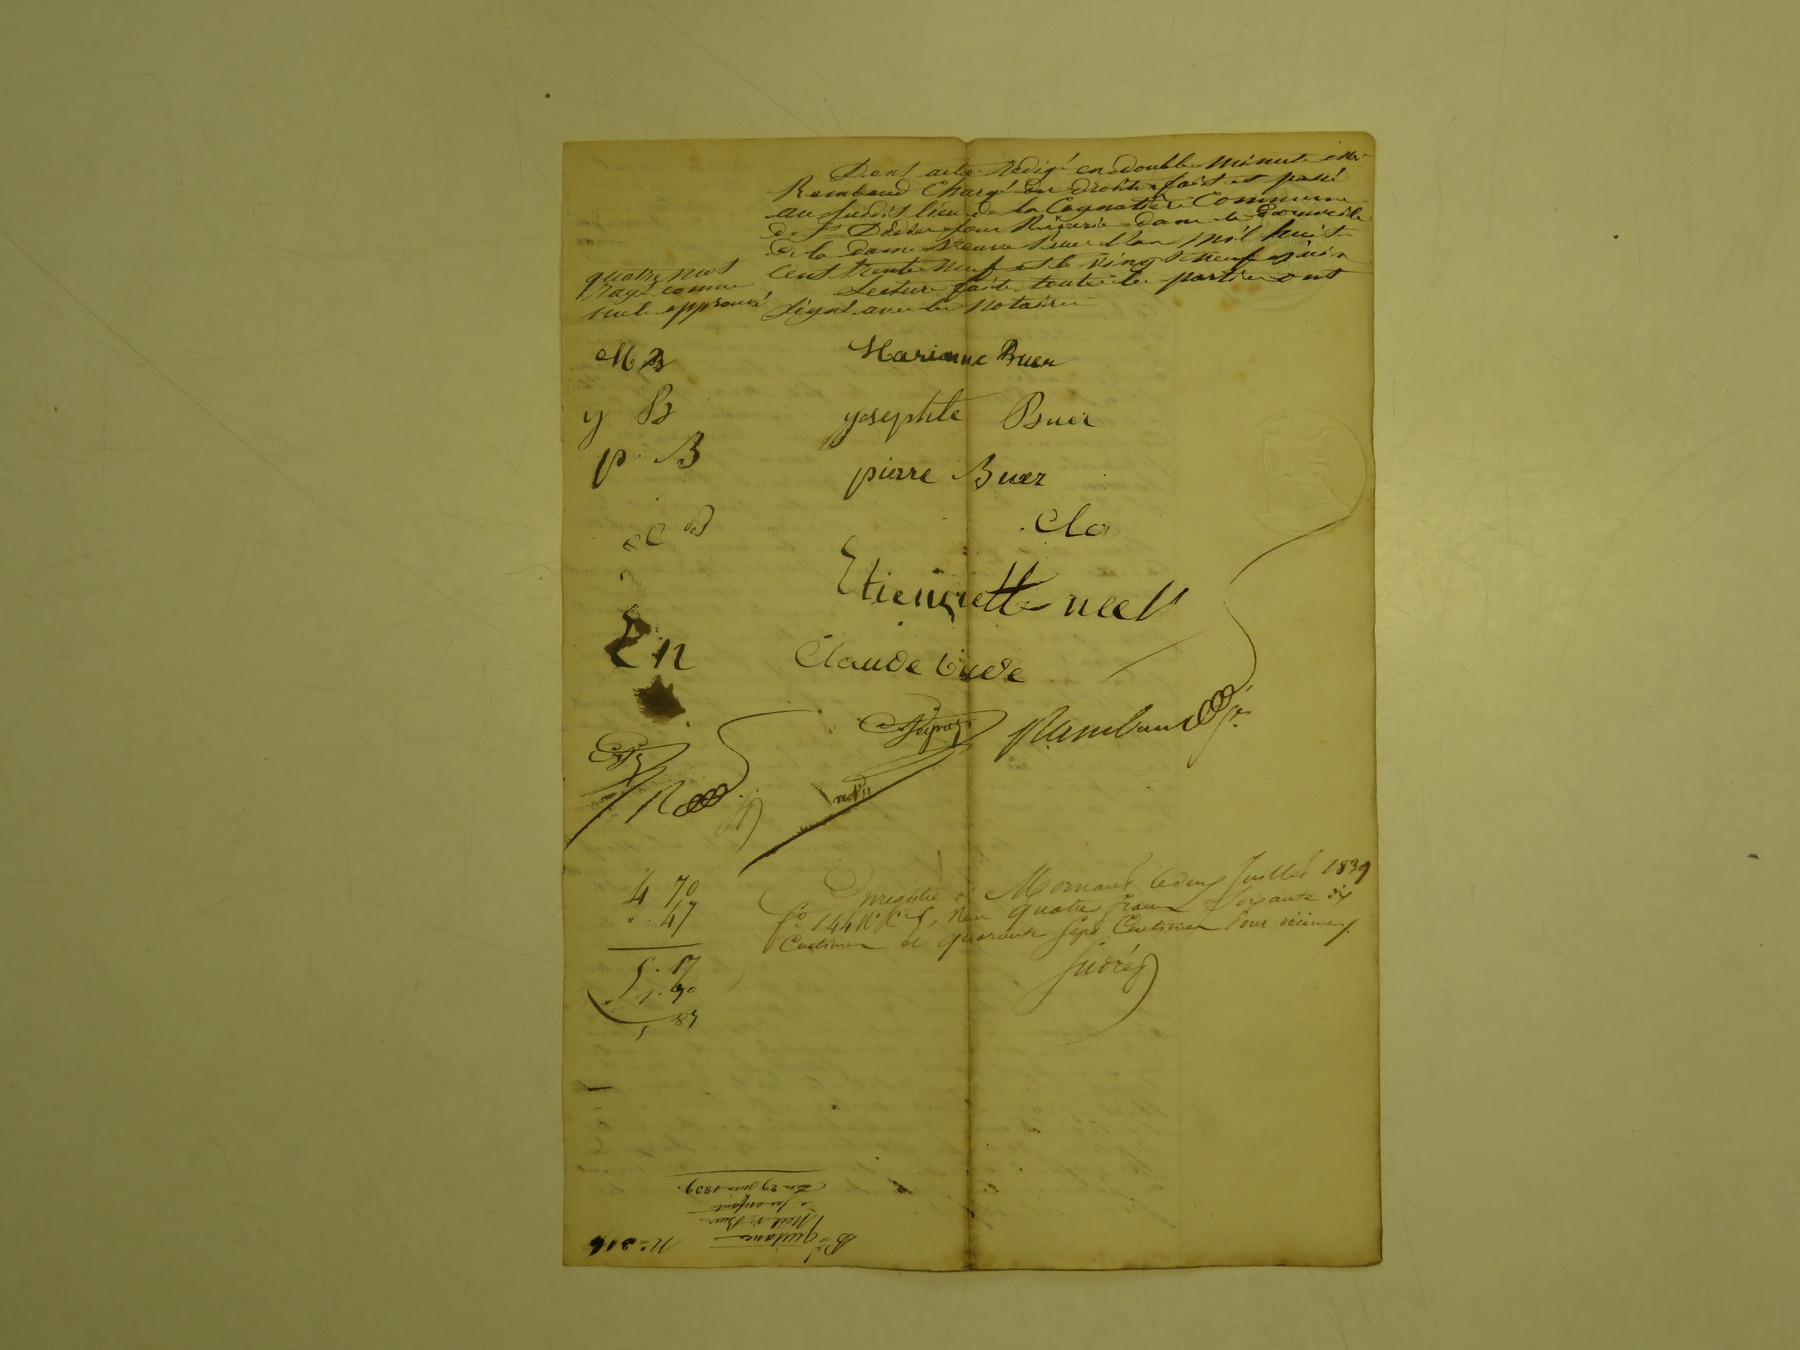 Dont acte rédigé en double minute
Rambaud Chargé du droit fait et passé
au susdit lieu de la Cognatière Commune
de St Didier sous Riverie dans le domicile
de la dame veuve Buer l'an mil huit
cent trente neuf et le vingt neuf juin
Lecture faite toutes les parties ont
signé avec les notaires
quatre mots
rayé comme
nuls approuvé
MB Marianne Buer
y B yosephte Buer
p B pierre Buer
C B Cla
Etiennette neel
En Claude bude
Rambaud
not
4 70
47
5. 17
5 87
Enregistré à Mornant le deux Juillet 1839
fo 144 Ro Reçu quatre francs soixante dix
Centimes et quarante sept Centimes pour décime
No 316
Bt quittance
Néel Ve Buer
à ses enfants
Du 29 juin 1839.